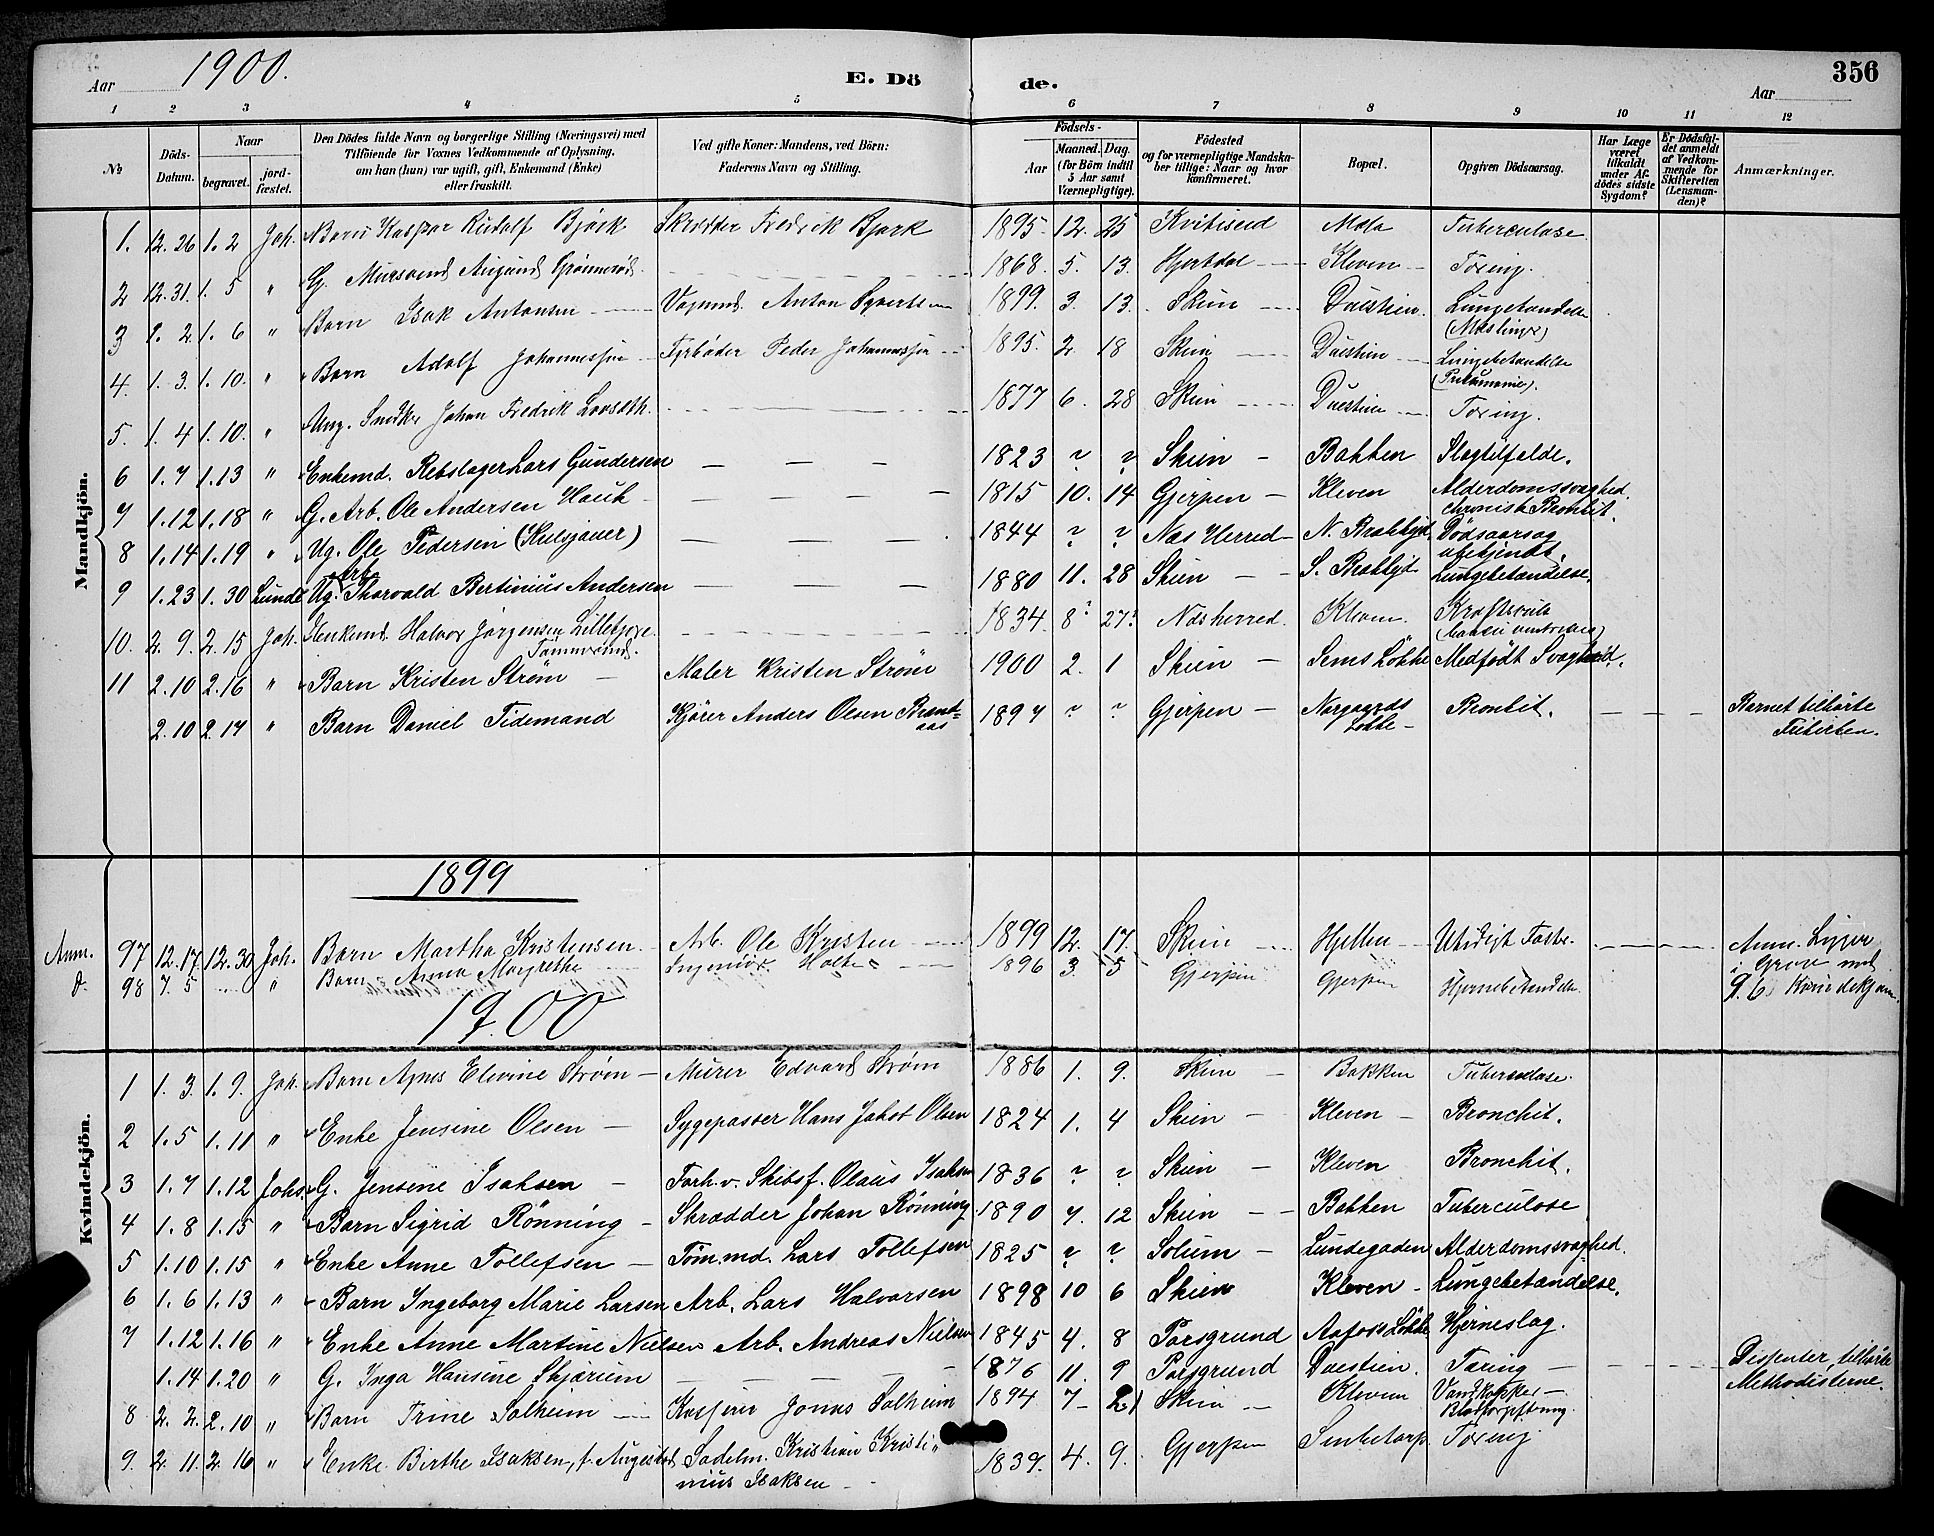 Aar 1900. E. Dö de. Aar 356
1 2 3 4 5 6 7 8 9 10 11 12
№
Döds-Datum.
Naar
begravet. jordfæstet.
Den Dödes fulde Navn og borgerlige Stilling (Næringsvei) med
Tilföiende for Voxnes Vedkommende af Oplysning,
om han (hun) var ugift, gift, Enkemand (Enke)
eller fraskilt.
Ved gifte Koner: Mandens, ved Börn:
Faderens Navn og Stilling.
Födsels-
Aar Maaned. Dag.
(for Börn indtil 5 Aar samt Værnepligtige).
Födested
og for værnepligtige Mandskaber tillige: Naar og hvor konfirmeret.
Bopæl.
Opgiven Dödsaarsag.
Har Læge været tilkaldt under Afdödes sidste Sygdom?
Er Dödsfaldet anmeldt af Vedkommende for Skifteretten (Lensmanden)?
Anmærkninger.
Mandkjön.
1. 12.26 1.2 Joh. Barn Kaspar Rudolf Bjørk Skrædder Fredrik Bjørk 1895 12. 25 Kvitiseid Tuberculose
2 12.31. 1.5 " G. Murs­vend 1868. 5. 13. Hjertdal Kleven Tæring.
3 1.2. 1.6 " Barn Isak Antonsen Anton 1899. 3. 13. Skien Duestien Lungebetændelse (Mæslinger)
4. 1.3. 1.10. " Barn Adolf Johannessen Fyrbøder Peder Johannessen 1895. 2. 18 Skien Duestien Lungebetændelse (Pneumonie).
5. 1.4 1.10. " Ung. Snedker Johan Fredrik 1877 6. 28 Skien Duestien Tæring.
6 1.7 1.13 " Enkemd. Rebslager Lars Gundersen 1823 ? ? Skien Bakken Slagtilfelde.
7 1.12 1.18 " G. Arb. Ole Andersen Hauk 1815 10. 14 Gjerpen Kleven Alderdomssvaghed. chronisk Bronkit.
8 1.14 1.19 " Ug. Ole Pedersen (Kulsjauer) 1844 ? ? Næs Herred N. Brekkeg. Dödsaarsag ubekjendt.
9 1.23 1.30 Lunde Ug. Arb. Thorvald Bertinius Andersen 1880 11. 28 Skien S. Brekkeg. Lungebetændelse.
10. 2.9. 2.15 Joh. Enkemd. Halvor Jørgensen Lillekjære Tømmermd. 1834. 8? 27? Næsherred Kleven
11 2.10 2.16 " Barn Kristen Strøm Maler Kristen Strøm 1900 2. 1 Skien Sems Løkke Medfødt Svaghed.
2.10 2.17 " Barn Daniel Tidemand Kjører Anders Olsen Brændaas 1897 ? ? Gjerpen Norgaards Løkke Bronkit. Barnet tilhørte Frikirken.
1899
Anm. 97 12.17. 12.30 Joh. Barn Martha Kristensen Arb. Ole Kristen 1899 12. 17. Skien Hjellen Utidigt Foster Anm. Ligger i Grav med
D. 98 7.5 " Barn Anna Margrethe Ingeniör Holte 1896 3. 5 Gjerpen Gjerpen Hjernebetændelse 9. 6. Kvindekjøn.
1900
Kvindekjön.
1 1.3. 1.9. Joh. Barn Agnes Elevine Strøm Murer Edvard Strøm 1886 1. 9. Skien Bakken Tuberculose.
2 1.5 1.11 " Enke Jensine Olsen Sygepasser Hans Jakob Olsen 1824 1. 4 Skien Kleven Bronchit.
3 1.7 1.12 Johs. G. Jensine Isaksen Forh.v. Skibsf. Olaus Isaksen 1836 ? ? Skien Kleven Bronchit.
4 1.8 1.15 " Barn Sigrid Rönning Skrædder Johan Rönning 1890 7. 12 Skien Bakken Tuberculose
5 1.10 1.15 " Enke Anne Tollefsen Töm.md. Lars Tollefsen 1825 ? ? Solum Lundegaden Alderdomssvaghed.
6 1.6 1.13 " Barn Ingeborg Marie Larsen Arb. Lars Halvorsen 1898 10 6 Skien Kleven Lungebetændelse.
7 1.12 1.16 " Enke Anne Martine Nielsen Arb. Andreas Nielsen 1845 4. 8 Porsgrund Aafoss Løkke Hjerneslag.
1.14 1.20 " G. Inga Hansine Skjærum 1876 11. 9 Porsgrund Duestien. Tæring Dissenter, tilhørte Methodisterne.
8 2.2. 2.10 " Barn Trine Solheim Kasserer Jonas Solheim 1894 7 21 Skien Kleven Vandkopper Blodforgiftning.
9. 2.11. 2.16 " Enke Birthe Isaksen, f. Augestad Sadelm. Kristian Kristinius Isaksen 1839. 4. 9. Gjerpen Tæring